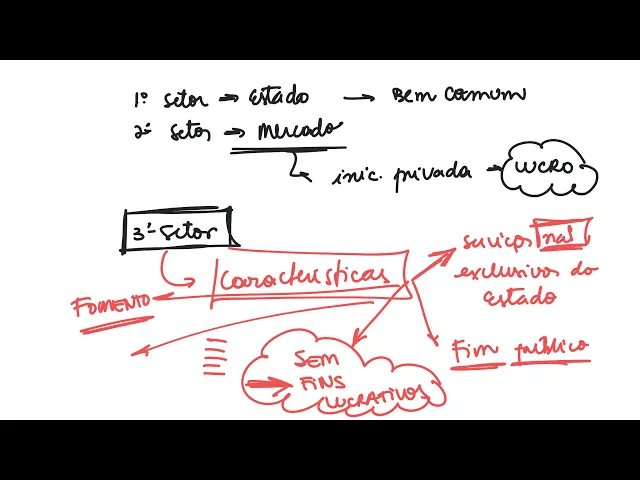 1º Setor → Estado → Bem comum
2º Setor → mercado
inic. privada → LUCRO
3º Setor
Características
serviços não
exclusivos do
Estado
FOMENTO
Fim público
SEM
FINS
LUCRATIVOS